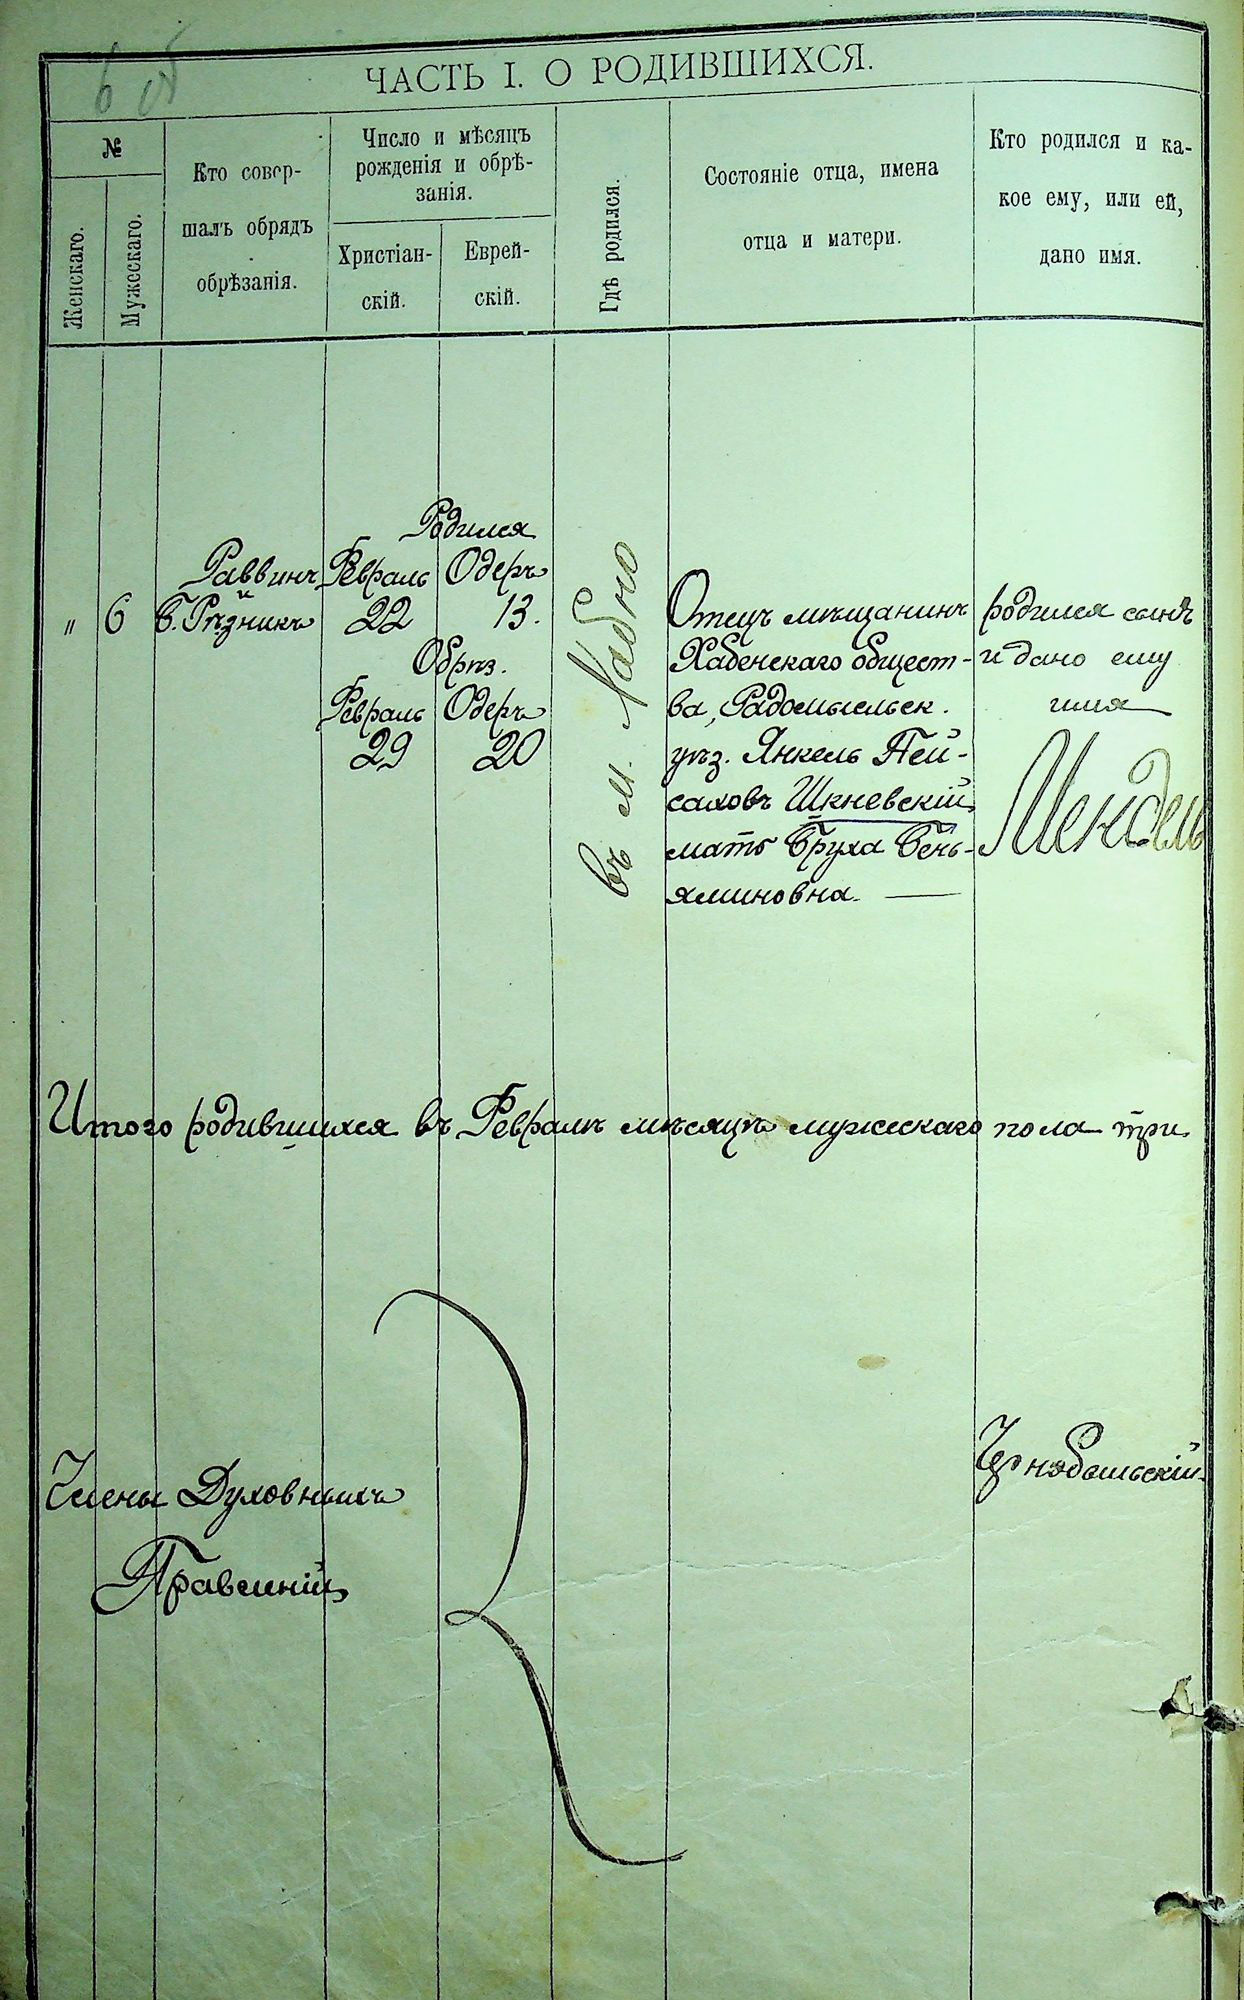 6 об
ЧАСТЬ I. О РОДИВШИХСЯ.
№
Женскаго.
Мужескаго.
Кто совер-
шалъ обрядъ
обрѣзанія.
Число и мѣсяцъ
рожденія и обрѣ-
занія.
Христіан-
скій.
Еврей-
скій.
Гдѣ родился.
Состояніе отца, имена
отца и матери.
Кто родился и ка-
кое ему, или ей,
дано имя.
"
6
Раввинъ
и
Б. Рѣзникъ
Родился
Февраль Одеръ
22 13.
Обрѣз.
Февраль Одеръ
29 20
въ м. Хабно
Отецъ мѣщанинъ
Хабенскаго общест-
ва, Радомысльск.
уѣз. Янкель Пей-
саховъ Шкневскій
мать Бруха Бень-
яминовна.
родился сынъ
и дано ему
имя
Мендель
Итого родившихся въ Февралѣ мѣсяцѣ мужескаго пола три
Члены Духовныхъ
Правленій
Чернобыльскій